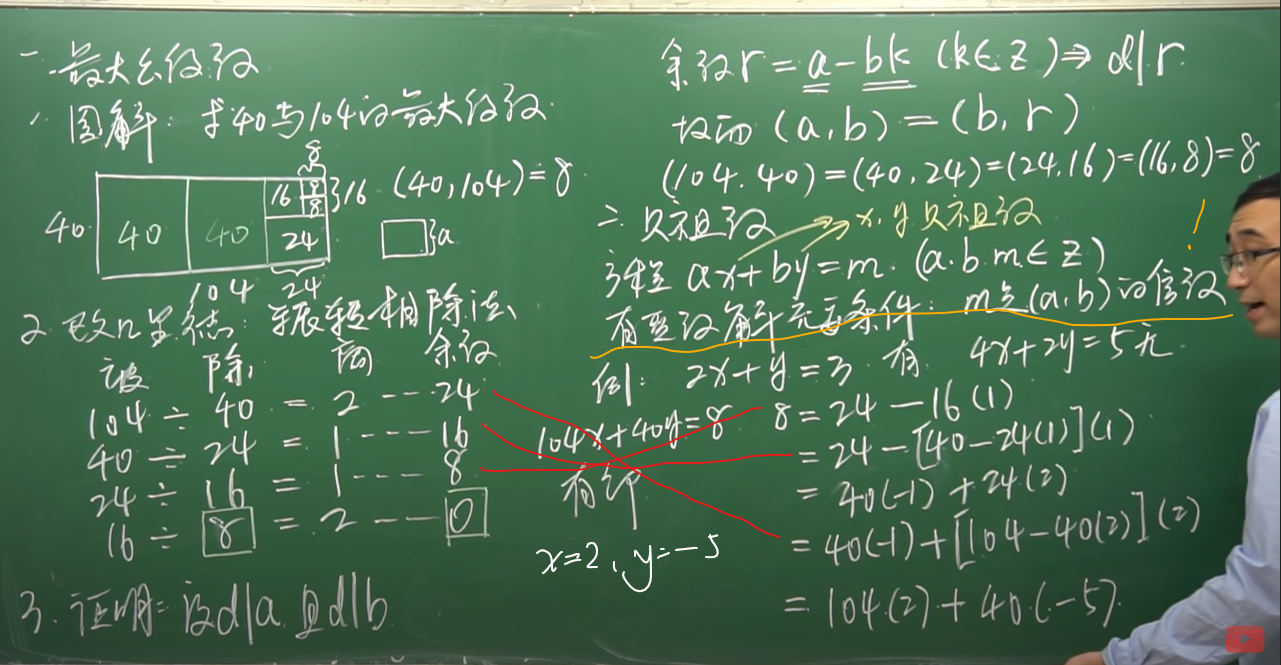 一.最大公约数
1.图解:求40与104的最大约数
8
16 8 8 16 (40,104)=8
40 40 40 24 a
104 24
2.欧几里德:辗转相除法
被 除 商 余数
104÷40=2---24
40÷24=1----16
24÷16=1----8
16÷8=2---0
3.证明:设d|a且d|b
余数r=a-bk(k∈z)⇒d|r
故而(a,b)=(b,r)
(104.40)=(40,24)=(24,16)=(16,8)=8
二.贝祖数 x,y贝祖数
!
方程ax+by=m.(a.b.m∈z)
有整数解充要条件:m是(a,b)的倍数
例:2x+y=3有 4x+2y=5无
104x+40y=8
有解
x=2,y=-5
8=24-16(1)
=24-[40-24(1)](1)
=40(-1)+24(2)
=40(-1)+[104-40(2)](2)
=104.(2)+40(-5).